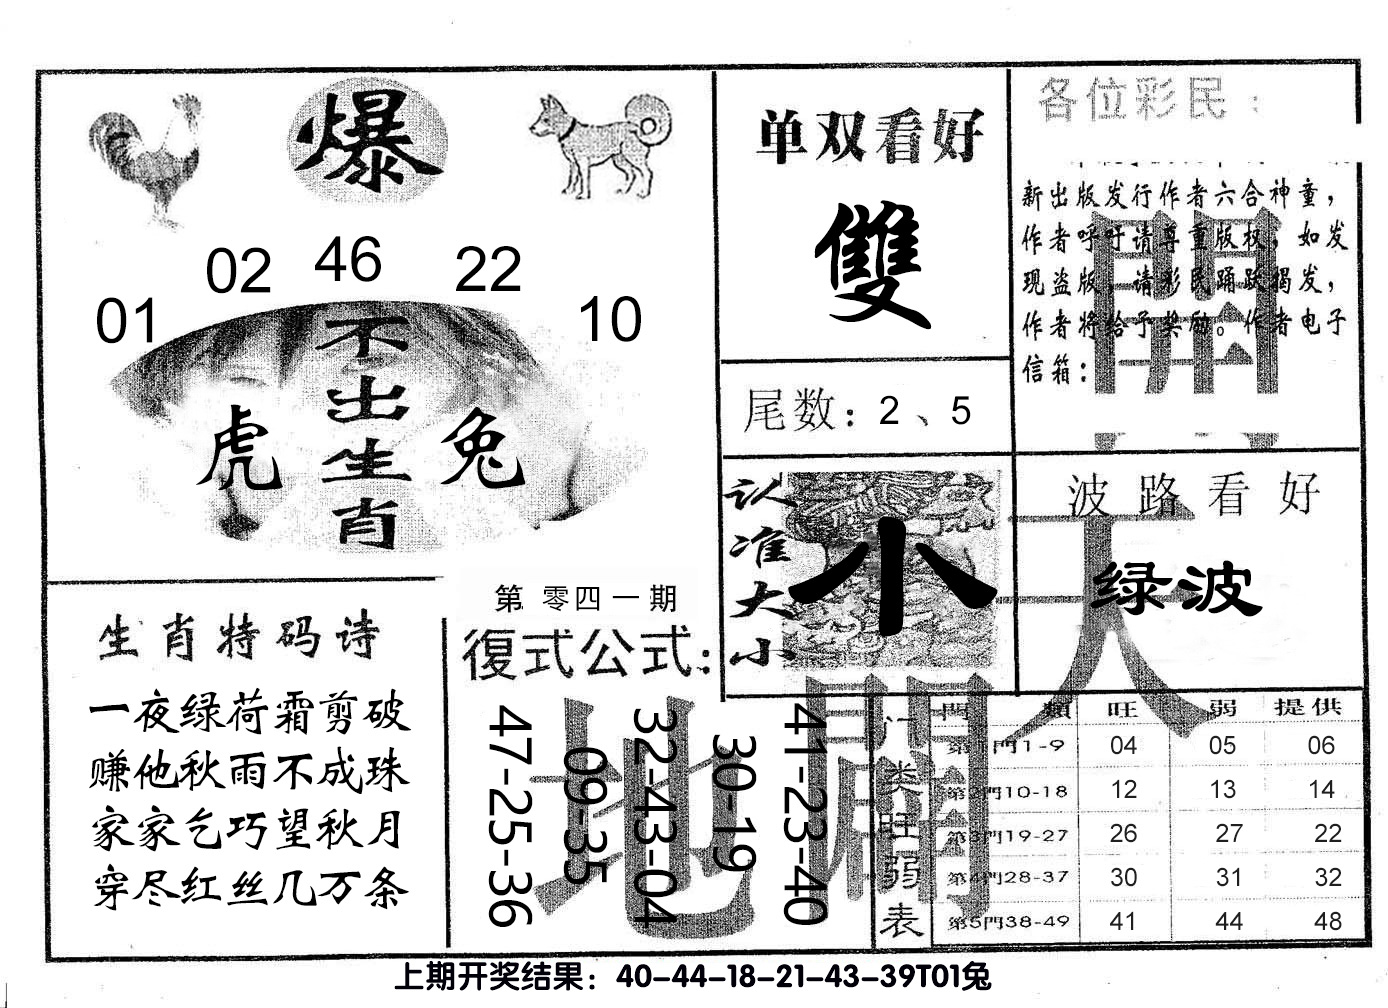 爆
01
02
46
22
10
不出生肖
虎
兔
单双看好
雙
尾数：2、5
各位彩民：
新出版发行作者六合神童，
作者呼吁请尊重版权，如发
现盗版，请彩民踊跃揭发，
作者将给予奖励。作者电子
信箱：
認准大小
小
波路看好
绿波
生肖特码诗
一夜绿荷霜剪破
赚他秋雨不成珠
家家乞巧望秋月
穿尽红丝几万条
第零四一期
復式公式：
47-25-36
09-35
32-43-04
30-19
41-23-40
天
地
門类旺弱表
門類 旺 弱 提供
第1門1-9 04 05 06
第2門10-18 12 13 14
第3門19-27 26 27 22
第4門28-37 30 31 32
第5門38-49 41 44 48
上期开奖结果：40-44-18-21-43-39T01兔